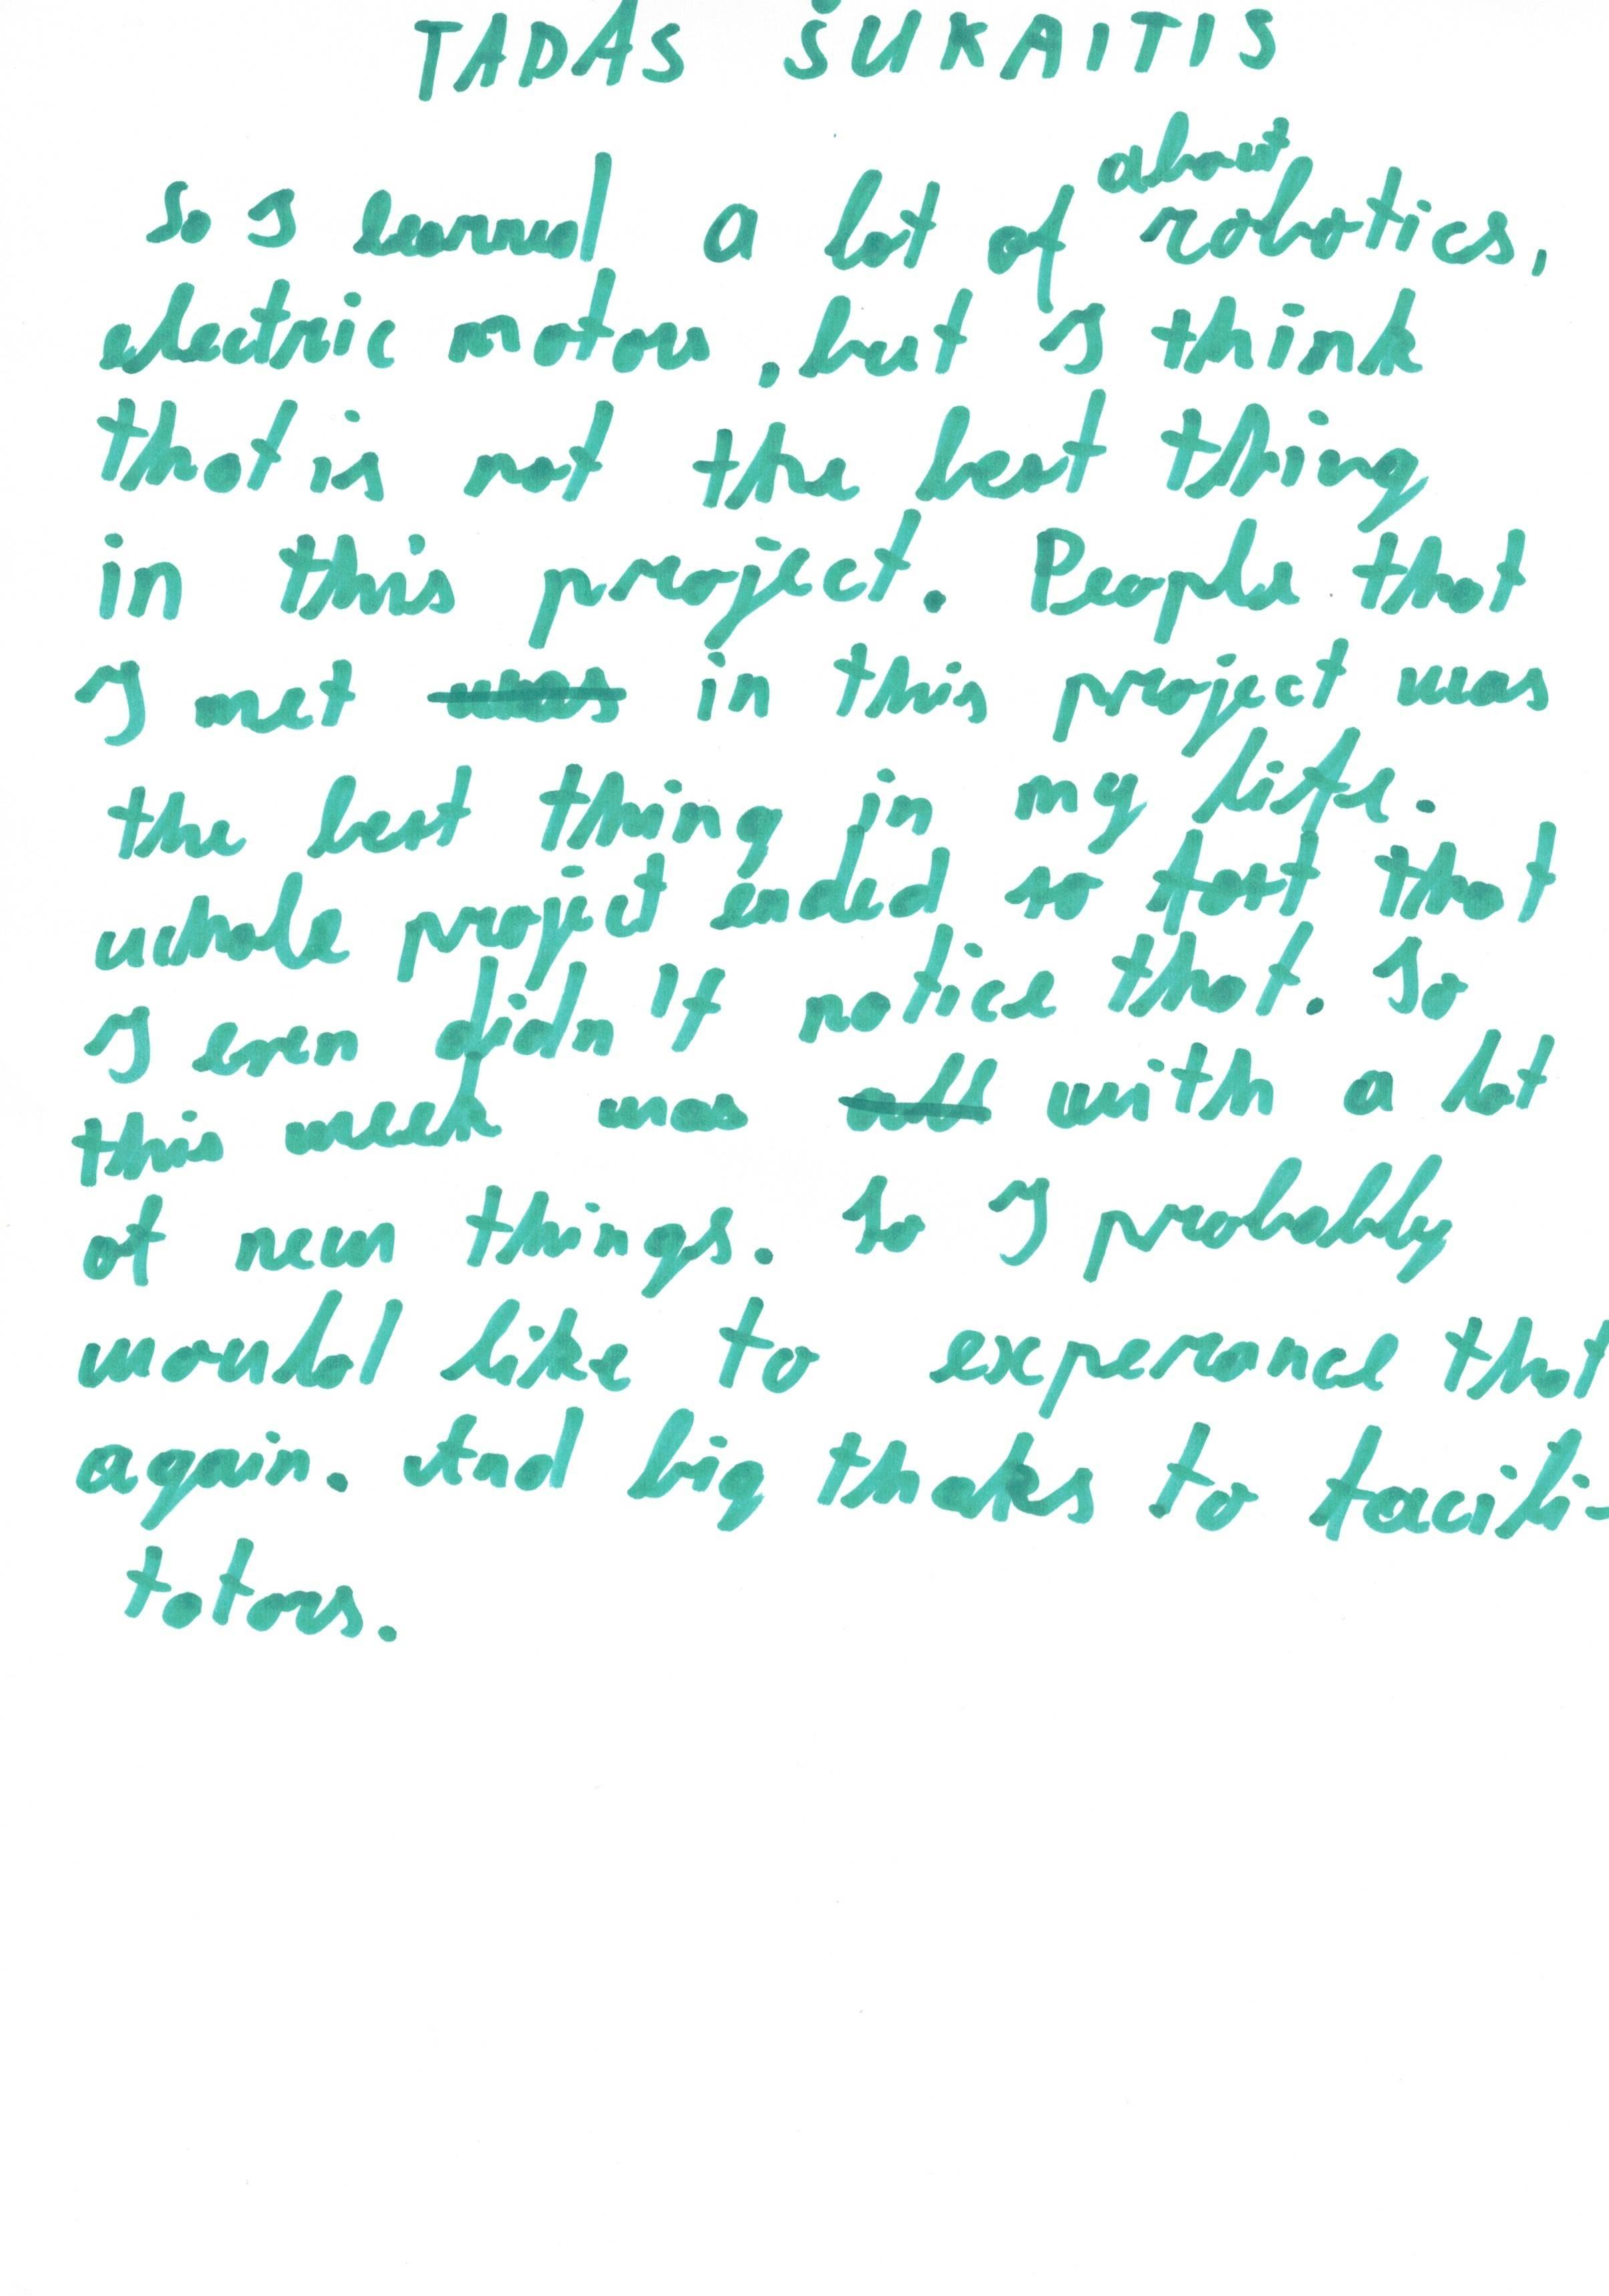 TADAS ŠUKAITIS
about
So I learned a lot of robotics,
electric motors, but I think
that is not the best thing
in this project. People that
I met was in this project was
the best thing in my life.
whole project ended so fast that
I even didn't notice that. So
this week was all with a lot
of new things. So I probably
would like to experance that
again. And big thaks to facili-
tators.